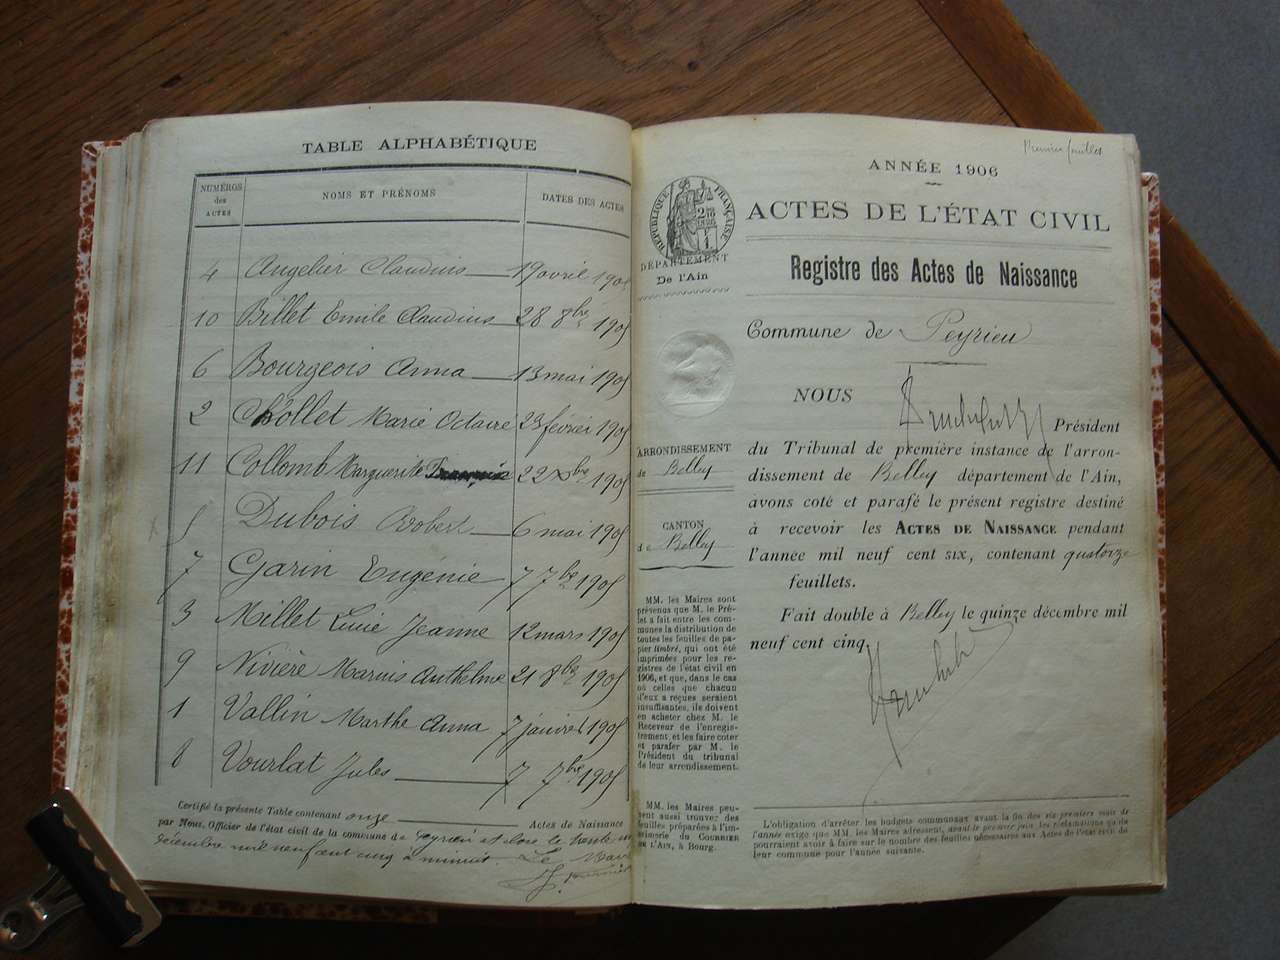 TABLE ALPHABÉTIQUE
NUMÉROS des ACTES NOMS ET PRÉNOMS DATES DES ACTES
4 Angelier Claudius 19 avril 1905
10 Billet Emile Claudius 28 8bre 1905
6 Bourgeois Anna 13 mai 1905
2 Chollet Marie Octavie 23 février 1905
11 Collomb Marguerite 22 Xbre 1905
5 Dubois Robert 6 mai 1905
7 Garin Eugénie 7 7bre 1905
3 Millet Lucie Jeanne 12 mars 1905
9 Nivière Marius Anthelme 21 8bre 1905
1 Vallin Marthe Anna 7 janvier 1905
8 Vourlat Jules 7 7bre 1905
Certifié la présente Table contenant onze Actes de Naissance
par Nous, Officier de l'état civil de la commune de Peyrieu et close le trente un
décembre mil neuf cent cinq à minuit. Le Maire
Premier feuillet
ANNÉE 1906
ACTES DE L'ÉTAT CIVIL
Registre des Actes de Naissance
RÉPUBLIQUE FRANÇAISE
DÉPARTEMENT
De l'Ain
Commune de Peyrieu
NOUS
Président
du Tribunal de première instance de l'arron-
dissement de Belley département de l'Ain,
avons coté et parafé le présent registre destiné
à recevoir les ACTES DE NAISSANCE pendant
l'année mil neuf cent six, contenant quatorze
feuillets.
Fait double à Belley le quinze décembre mil
neuf cent cinq.
ARRONDISSEMENT
de Belley
CANTON
de Belley
MM. les Maires sont
prévenus que M. le Pré-
fet a fait entre les com-
munes la distribution de
toutes les feuilles de pa-
pier timbré, qui ont été
imprimées pour les re-
gistres de l'état civil en
1906, et que, dans le cas
où celles que chacun
d'eux a reçues seraient
insuffisantes, ils doivent
en acheter chez M. le
Receveur de l'enregis-
trement, et les faire coter
et parafer par M. le
Président du tribunal
de leur arrondissement.
MM. les Maires peu-
vent aussi trouver des
feuilles préparées à l'im-
primerie du COURRIER
DE L'AIN, à Bourg.
L'obligation d'arrêter les budgets communaux avant la fin des six premiers mois de
l'année exige que MM. les Maires adressent, avant le premier juin les réclamations qu'ils
pourraient avoir à faire sur le nombre des feuilles nécessaires aux Actes de l'état civil de
leur commune pour l'année suivante.